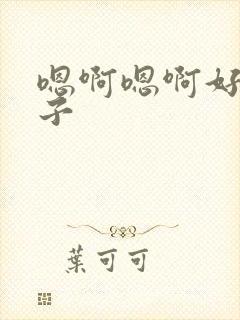 嗯啊嗯啊好
子
葉可可